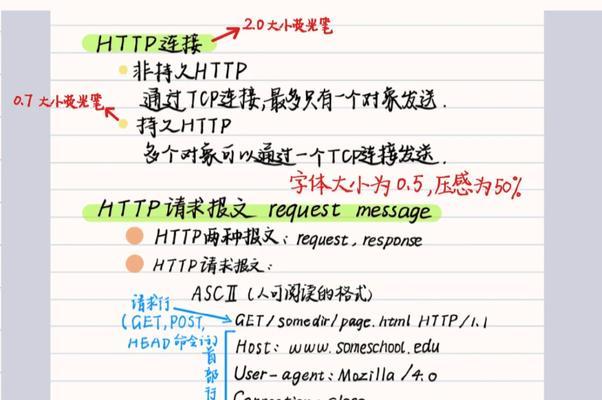 2.0大小荧光笔
HTTP连接
非持久HTTP
通过TCP连接,最多只有一个对象发送.
0.7大小荧光笔
持久HTTP
多个对象可以通过一个TCP连接发送.
字体大小为0.5,压感为50%
HTTP请求报文 request message
HTTP两种报文: request, response
HTTP请求报文:
ASCII (人可阅读的格式)
请求行
(GET, POST,
HEAD命令行)
GET/somedir/page.html HTTP/1.1
首部行
Host: www.someschool.edu
User-agent: Mozilla /4.0
Connection: close